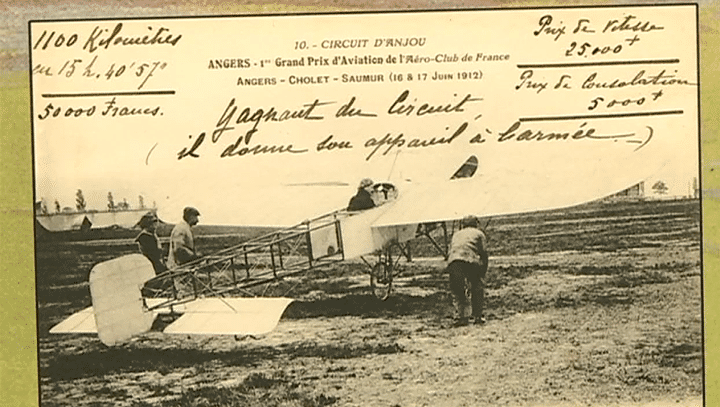 1100 Kilomètres
en 15h. 40' 57"
50000 Francs.
10. - CIRCUIT D'ANJOU
ANGERS - 1er Grand Prix d'Aviation de l'Aéro-Club de France
ANGERS - CHOLET - SAUMUR (16 & 17 JUIN 1912)
Prix de Vitesse
25.000 f
Prix de Consolation
5000 f
Gagnant du Circuit,
(il donne son appareil à l'armée -)